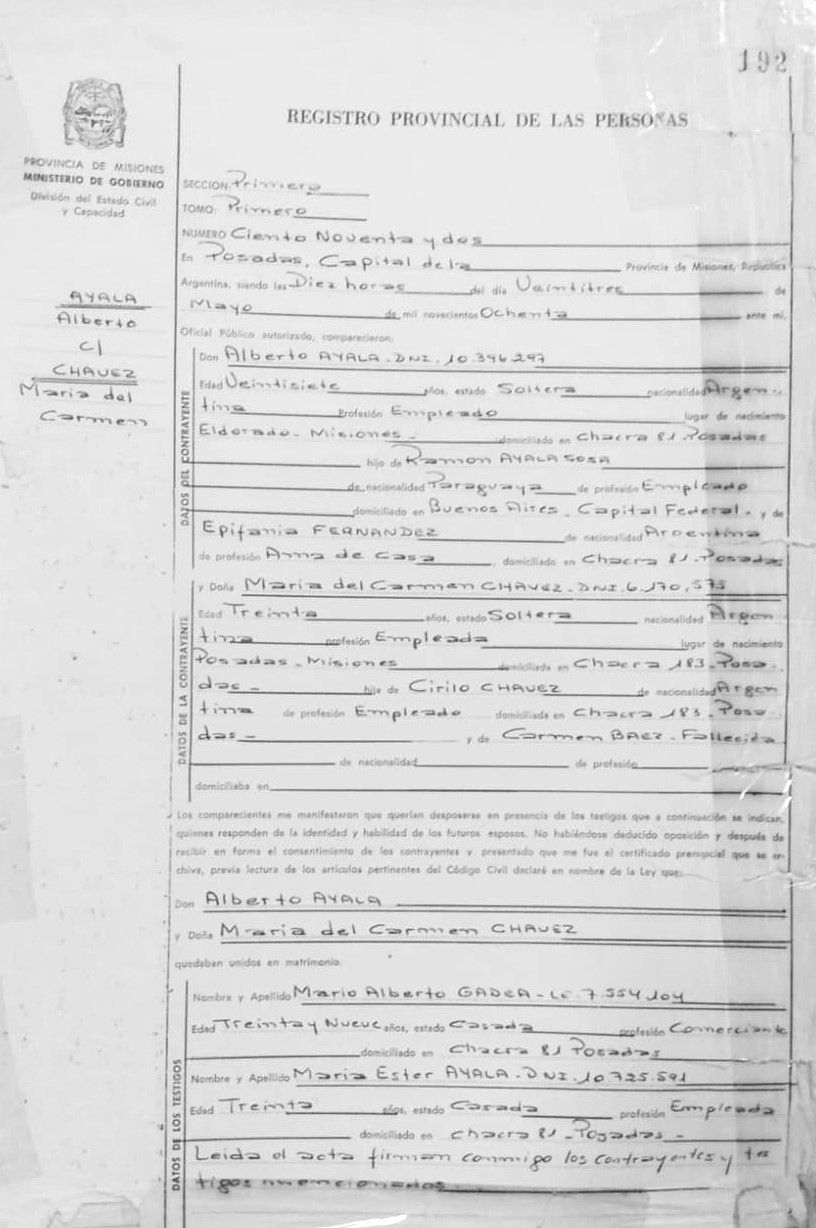 192
REGISTRO PROVINCIAL DE LAS PERSONAS
PROVINCIA DE MISIONES
MINISTERIO DE GOBIERNO
División del Estado Civil
y Capacidad
AYALA
Alberto
c/
CHAVEZ
Maria del
Carmen
SECCION Primera
TOMO: Primero
NUMERO Ciento Noventa y dos
En Posadas, Capital de la Provincia de Misiones, República
Argentina, siendo las Diez horas del día Veintitres de
Mayo de mil novecientos Ochenta ante mí,
Oficial Público autorizado, comparecieron:
DATOS DEL CONTRAYENTE
Don Alberto AYALA. DNI. 10.346.297
Edad Veintisiete años, estado Soltera nacionalidad Argen-
tina Profesión Empleado lugar de nacimiento
Eldorado - Misiones - domiciliado en Chacra 81 - Posadas
hijo de Ramon AYALA SOSA
de nacionalidad Paraguaya de profesión Empleado
domiciliado en Buenos Aires. Capital Federal - y de
Epifania FERNANDEZ de nacionalidad Argentina
de profesión Ama de Casa, domiciliado en Chacra 81 - Posadas
DATOS DE LA CONTRAYENTE
y Doña Maria del Carmen CHAVEZ - DNI. 6.170,575
Edad Treinta años, estado Soltera nacionalidad Argen
tina profesión Empleada lugar de nacimiento
Posadas - Misiones domiciliada en Chacra 183 - Posa
das - hija de Cirilo CHAVEZ de nacionalidad Argen
tina de profesión Empleado domiciliado en Chacra 183 - Posa
das - y de Carmen BAEZ - Fallecida
de nacionalidad de profesión
domiciliaba en
Los comparecientes me manifestaron que querían desposarse en presencia de los testigos que a continuación se indican,
quienes responden de la identidad y habilidad de los futuros esposos. No habiéndose deducido oposición y después de
recibir en forma el consentimiento de los contrayentes y presentado que me fue el certificado prenupcial que se ar-
chiva, previa lectura de los artículos pertinentes del Código Civil declaré en nombre de la Ley que:
Don Alberto AYALA
y Doña Maria del Carmen CHAVEZ
quedaban unidos en matrimonio.
DATOS DE LOS TESTIGOS
Nombre y Apellido Mario Alberto GADEA - LE. 7.554.104
Edad Treinta y Nueve años, estado Casada profesión Comerciante
domiciliado en Chacra 81 Posadas
Nombre y Apellido Maria Ester AYALA. DNI. 10.725.591
Edad Treinta años, estado Casada profesión Empleada
domiciliado en Chacra 81 - Posadas -
Leida el acta firman conmigo los contrayentes y tes
tigos mencionados